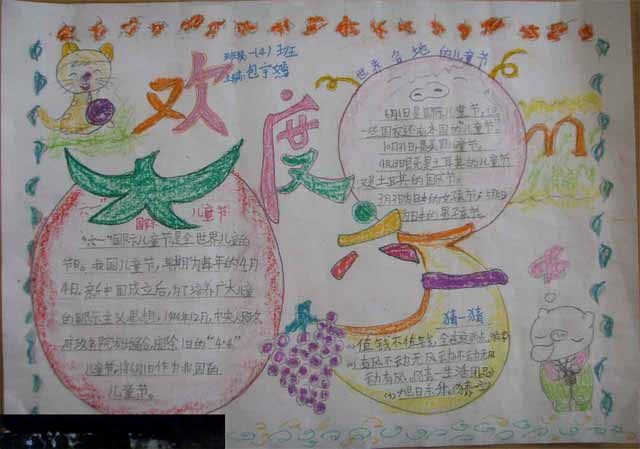 班级:一(4)班
主编:包宇嫣
世界各地的儿童节
欢度六一
6月1日是国际儿童节,但
一些国家还有本国的儿童节。
4月23日是土耳其的儿童节
又是土耳其的国庆节。
3月3日为日本的女孩节,5月5日
日本的男孩节。
"六一"国际儿童节
"六一"国际儿童节是全世界儿童的
节日。我国儿童节,早期为每年的4月
4日。新中国成立后,为了培养广大儿童
的国际主义思想,1949年12月,中央人民政
府政务院发出通令,废除旧的"4·4"
儿童节,
儿童节。
猜一猜
值钱不值钱,全在这两点。
(2)有风不动无风动,不动无风
动有风。(猜一生活用品)
(3)旭日东升。(猜一字)